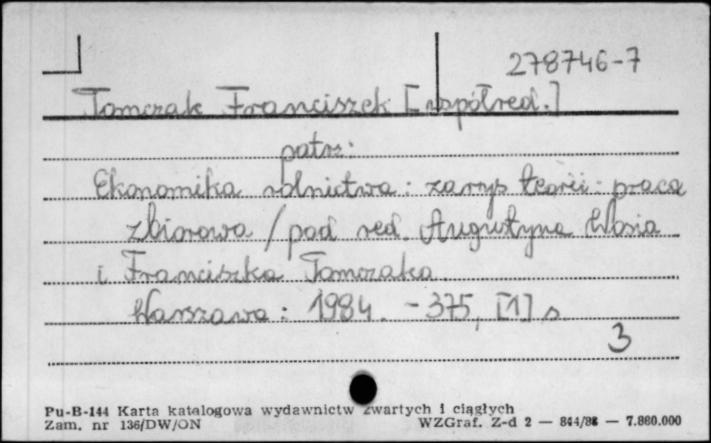 278746-7
Tomczak Franciszek [współred.]
patrz:
Ekonomika rolnictwa : zarys teorii : praca
zbiorowa / pod red. Augustyna Wosia
i Franciszka Tomczaka.
Warszawa : 1984. - 375, [1] s
3
Pu-B-144 Karta katalogowa wydawnictw zwartych i ciągłych
Zam. nr 136/DW/ON WZGraf. Z-d 2 — 844/88 — 7.860.000